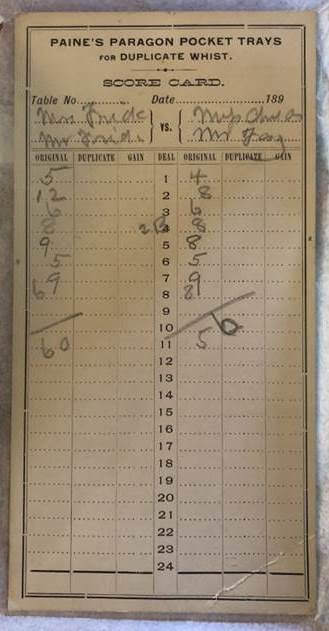 PAINE'S PARAGON POCKET TRAYS
FOR DUPLICATE WHIST.
SCORE CARD.
Table No. Date 189
Mrs VS. Miss
Mr Mr
ORIGINAL DUPLICATE GAIN DEAL ORIGINAL DUPLICATE GAIN
5 1 4
12 2 8
6 3 6
8 4 8
9 5 8
5 6 5
9 7 9
6 8 8
9
10
60 11 56
12
13
14
15
16
17
18
19
20
21
22
23
24